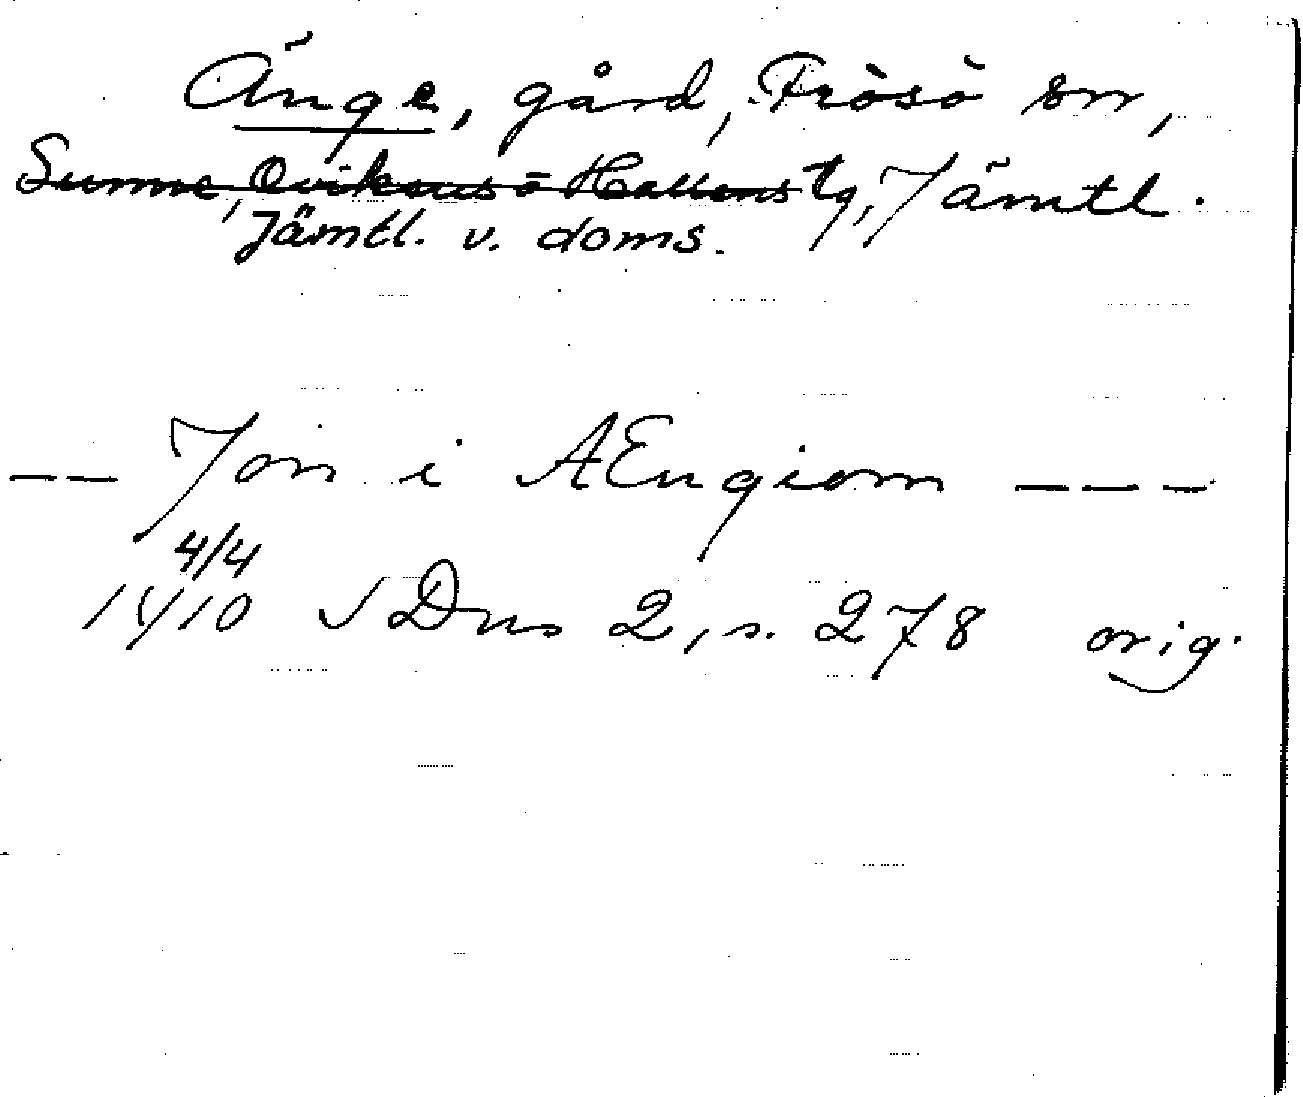 Änge, gård, Frösö sn,
Sunne, Ovikens o Hallens tg, Jämtl.
Jämtl. v. doms.
-- Jon i AEngiom ---
4/4
1410 √ Dns 2, s. 278 orig.